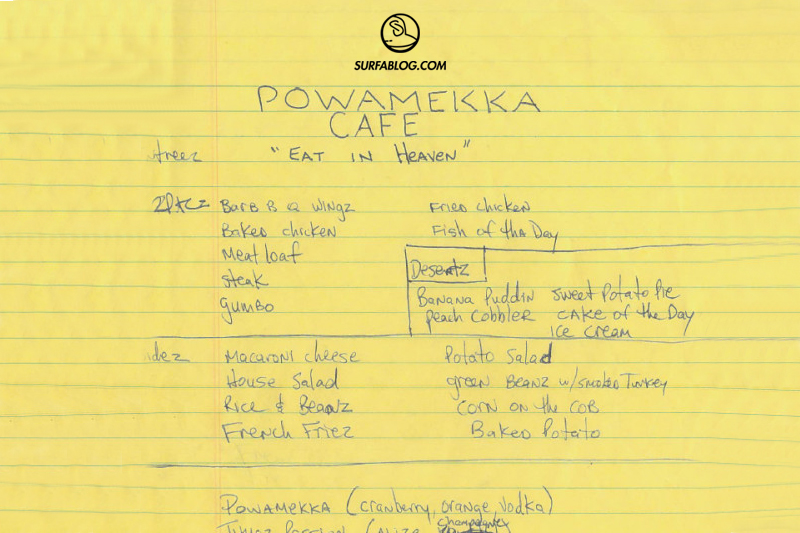 SURFABLOG.COM
POWAMEKKA
CAFE
"EAT IN HEAVEN"
treez
Barb B Q Wingz Fried chicken
Baked chicken Fish of tha Day
Meat loaf
Desertz
steak
Banana Puddin sweet Potato Pie
gumbo
peach Cobbler CAKE of the Day
ice cream
dez Macaroni cheese Potato Salad
House Salad green Beanz w/smoked Turkey
Rice & Beanz CORN on the COB
French Friez Baked Potato
POWAMEKKA (cranberry, orange, vodka)
champagne